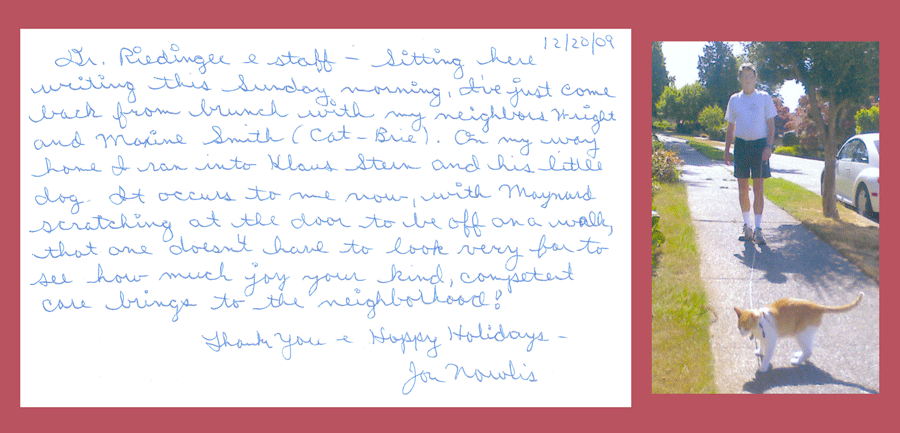 12/20/09
Dr. Riedinger & staff – Sitting here
writing this Sunday morning, I've just come
back from brunch with my neighbors Wright
and Maxine Smith (Cat-Brie). On my way
home I ran into Klaus Stern and his little
dog. It occurs to me now, with Maynard
scratching at the door to be off on a walk,
that one doesn't have to look very far to
see how much joy your kind, competent
care brings to the neighborhood!
Thank You & Happy Holidays –
Jon Nowlis